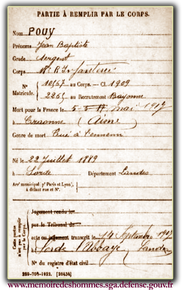 PARTIE À REMPLIR PAR LE CORPS.
Nom POUY
Prénoms Jean Baptiste
Grade Sergent
Corps Rt d'Infanterie
N° Matricule. 10/67 au Corps. — Cl 1909
2265 au Recrutement Bayonne
Mort pour la France le 5 Mai 1917
à Craonne (Aisne)
Genre de mort Tué à l'ennemi
Né le 22 Juillet 1889
à Sorde Département Landes
Arr. municipal (pr Paris et Lyon), à défaut rue et N°.
Jugement rendu le
par le Tribunal de
jugement transcrit le 14 Septembre 1917
à Sorde l'Abbaye Landes
N° du registre d'état civil
www.memoiredeshommes.sga.defense.gouv.fr